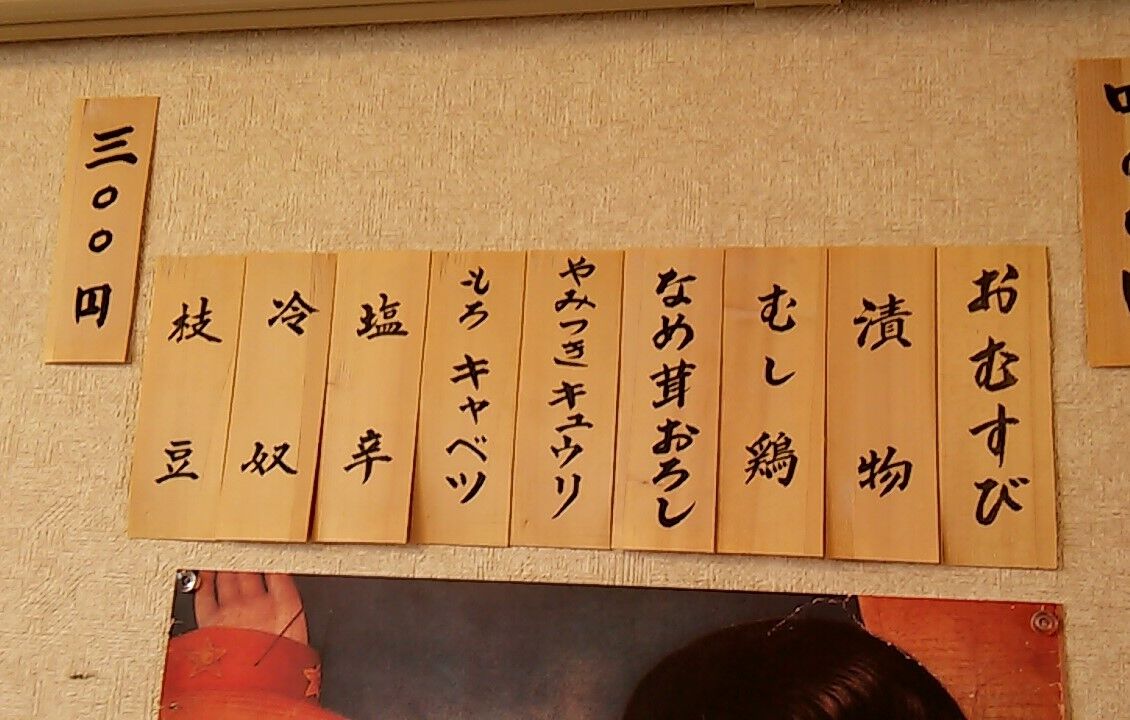 おむすび
漬物
むし鶏
なめ茸おろし
やみつきキュウリ
もろキャベツ
塩辛
冷奴
枝豆
三〇〇円